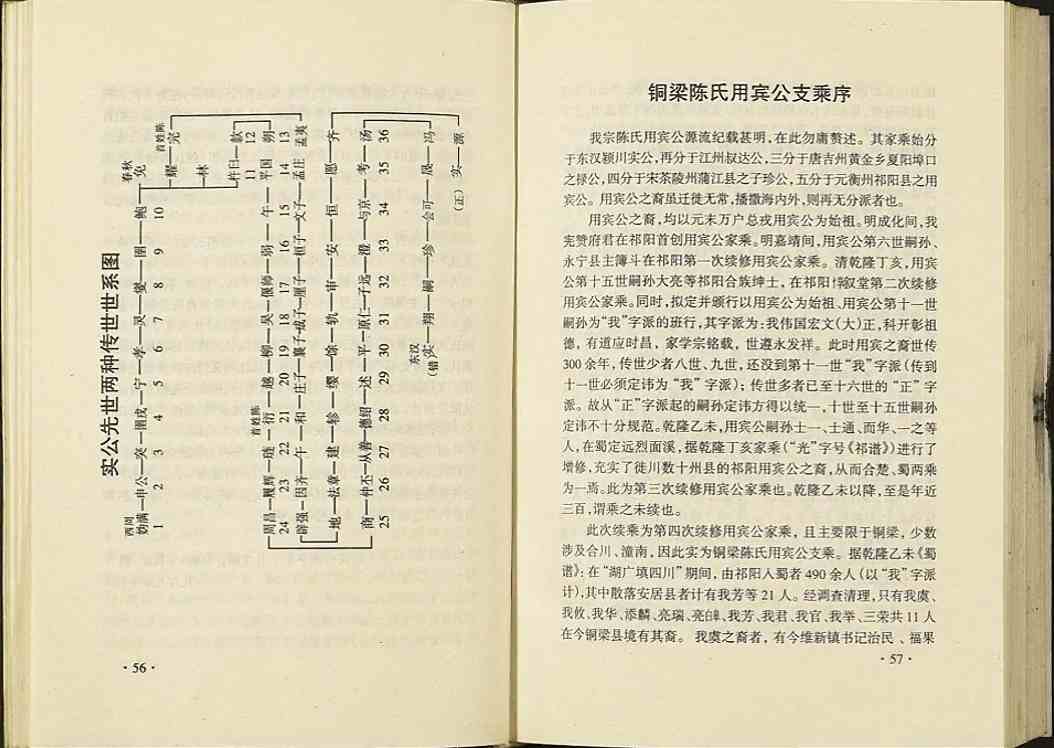 实公先世两种传世世系图
西周 春秋
妫满—申公—突—圉戎—宁—孝—灵—燮—圉—鲍
1 2 3 4 5 6 7 8 9 10
免
首姓陈
完
耀
林
杵臼—款
11 12
首姓陈
周昌—履辉—琏—衍—越—柳—吴—偃师—弱—午—平国 朔
24 23 22 21 20 19 18 17 16 15 14 13
辟强—因齐—午—和—庄子—襄子—成子—厘子—桓子—文子—孟庄 孟夷
地—法章—建—轸—缨—馀—轨—审—安—恒—愿—齐
商—仲丕—从善—德绍—述—平—原仁—子远—澄—与京—考—汤
25 26 27 28 29 30 31 32 33 34 35 36
东汉
(错)实—翔—嗣—珍—会可—晟—冯
(正) 实—源
·56·
铜梁陈氏用宾公支乘序
我宗陈氏用宾公源流纪载甚明,在此勿庸赘述。其家乘始分
于东汉颍川实公,再分于江州叔达公,三分于唐吉州黄金乡夏阳埠口
之禄公,四分于宋茶陵州蒲江县之子珍公,五分于元衡州祁阳县之用
宾公。用宾公之裔虽迁徙无常,播撒海内外,则再无分派者也。
用宾公之裔,均以元末万户总戎用宾公为始祖。明成化间,我
宪赞府君在祁阳首创用宾公家乘。明嘉靖间,用宾公第六世嗣孙、
永宁县主簿斗在祁阳第一次续修用宾公家乘。清乾隆丁亥,用宾
公第十五世嗣孙大亮等祁阳合族绅士,在祁阳惇叙堂第二次续修
用宾公家乘。同时,拟定并颁行以用宾公为始祖、用宾公第十一世
嗣孙为“我”字派的班行,其字派为:我伟国宏文(大)正,科开彰祖
德,有道应时昌,家学宗铭载,世遵永发祥。此时用宾之裔世传
300余年,传世少者八世、九世,还没到第十一世“我”字派(传到
十一世必须定讳为“我”字派);传世多者已至十六世的“正”字
派。故从“正”字派起的嗣孙定讳方得以统一,十世至十五世嗣孙
定讳不十分规范。乾隆乙未,用宾公嗣孙士一、士通、而华、一之等
人,在蜀定远烈面溪,据乾隆丁亥家乘(“光”字号《祁谱》)进行了
增修,充实了徙川数十州县的祁阳用宾公之裔,从而合楚、蜀两乘
为一焉。此为第三次续修用宾公家乘也。乾隆乙未以降,至是年近
三百,谓乘之未续也。
此次续乘为第四次续修用宾公家乘,且主要限于铜梁,少数
涉及合川、潼南,因此实为铜梁陈氏用宾公支乘。据乾隆乙未《蜀
谱》:在“湖广填四川”期间,由祁阳入蜀者490余人(以“我”字派
计),其中散落安居县者计有我芳等21人。经调查清理,只有我虞、
我攸、我华、添麟、亮瑞、亮皋、我芳、我君、我官、我举、三荣共11人
在今铜梁县境有其裔。我虞之裔者,有今维新镇书记治民、福果
·57·